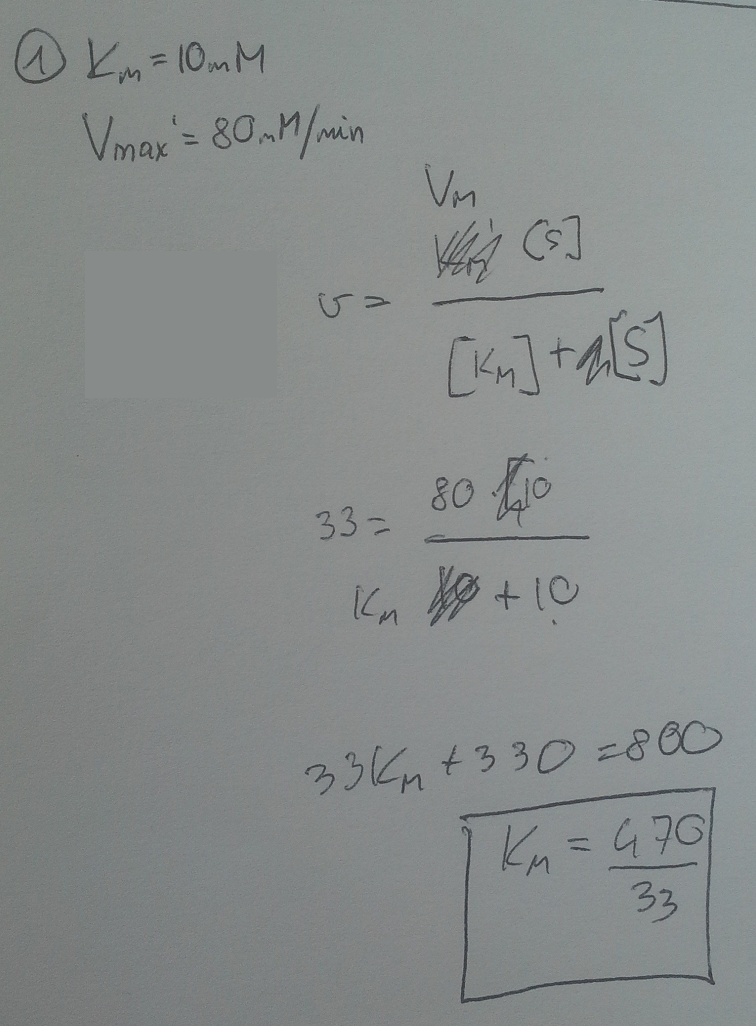 ① Km = 10mM
Vmax = 80mM/min
VM
[S]
v =
[KM] + [S]
80 10
33 =
KM + 10
33KM + 330 = 800
KM = 470
33